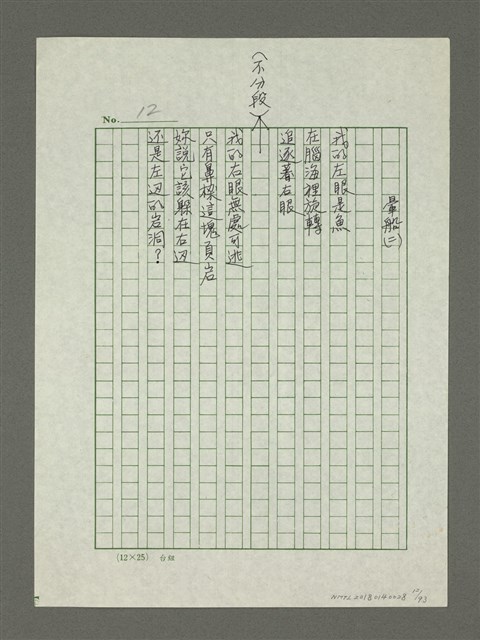 No. 12
(不分段)
暈船(二)
我的左眼是魚
在腦海裡旋轉
追逐著右眼
我的右眼無處可逃
只有鼻樑這塊頁岩
妳說它該躲在右边
还是左边的岩洞？
(12×25)
NMTL20180140028